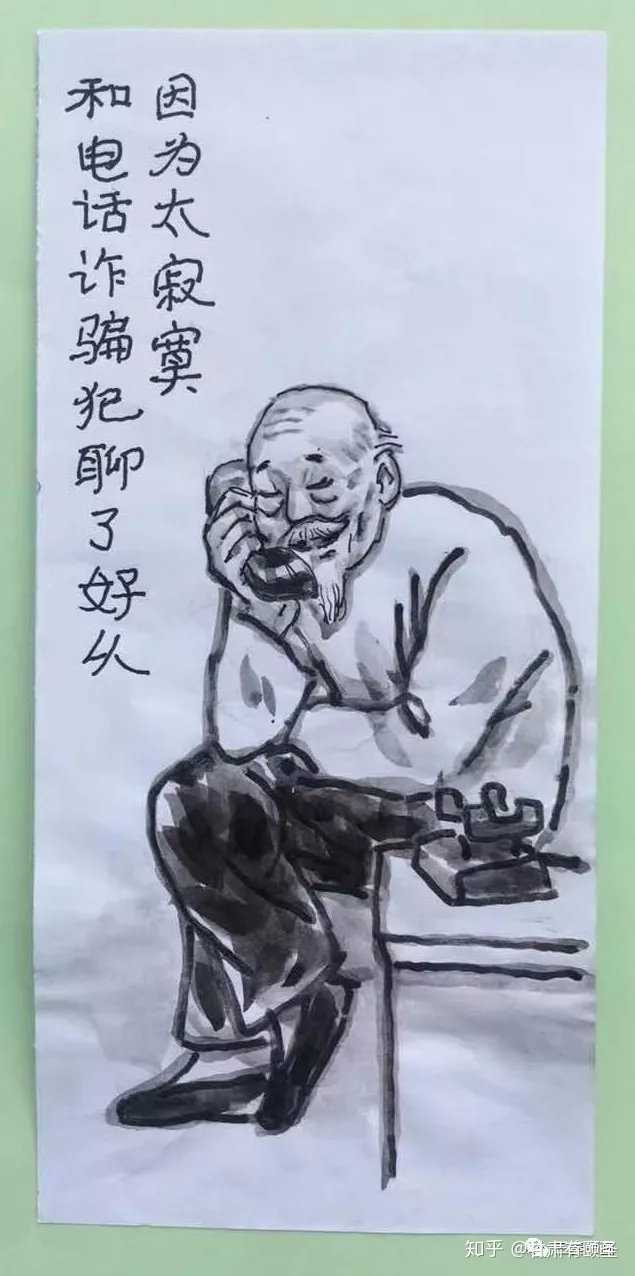 因为太寂寞
和电话诈骗犯聊了好久
知乎